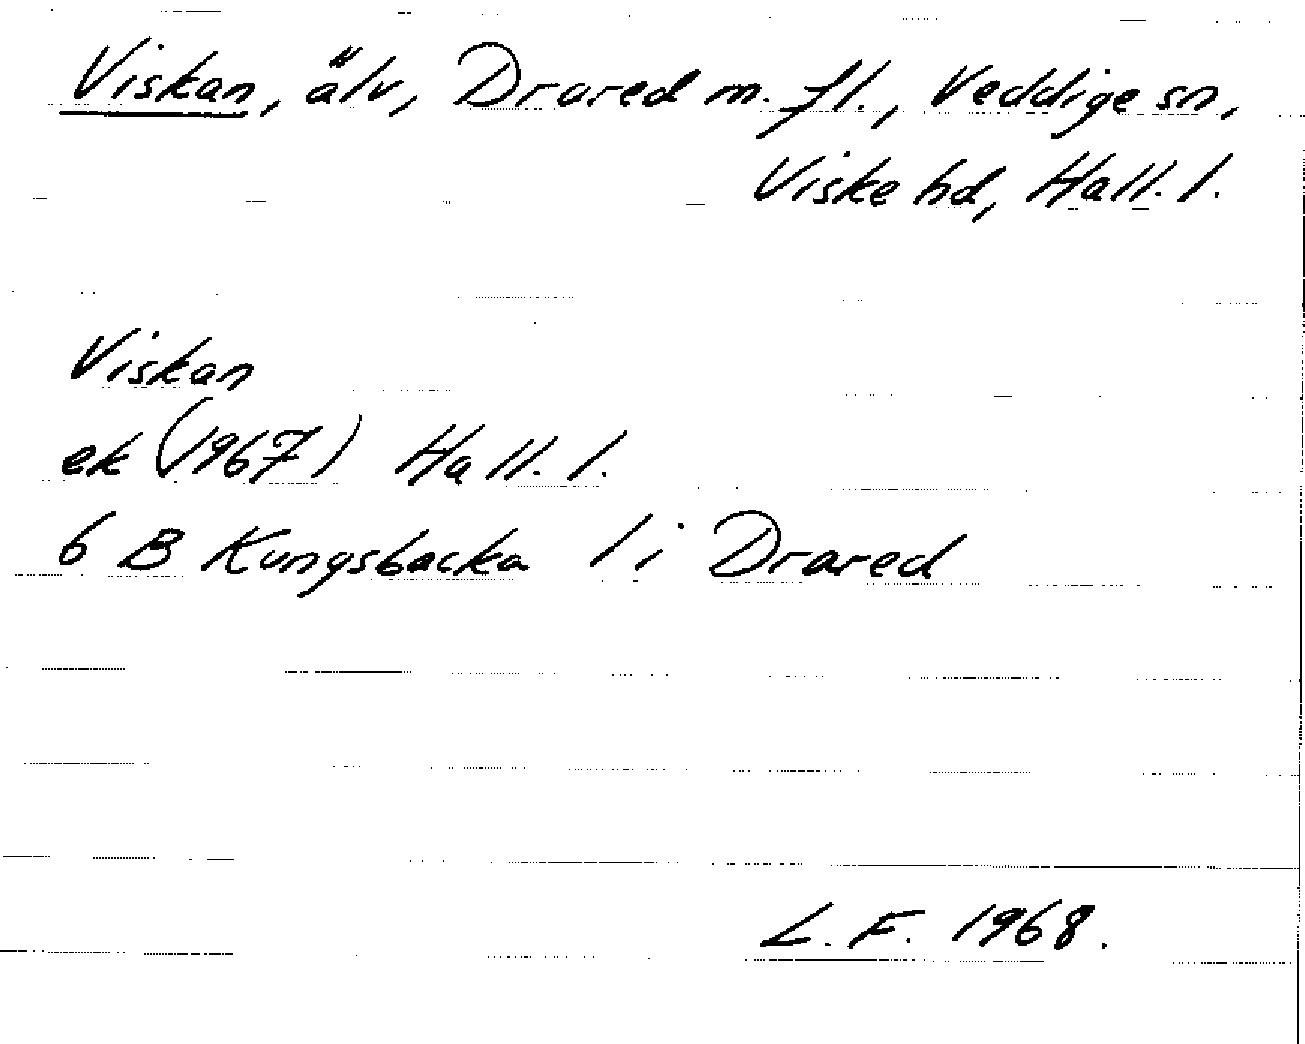 Viskan, älv, Drared m. fl., Veddige sn,
Viske hd, Hall. l.
Viskan
ek (1967) Hall. l.
6 B Kungsbacka 1i Drared
L. F. 1968.